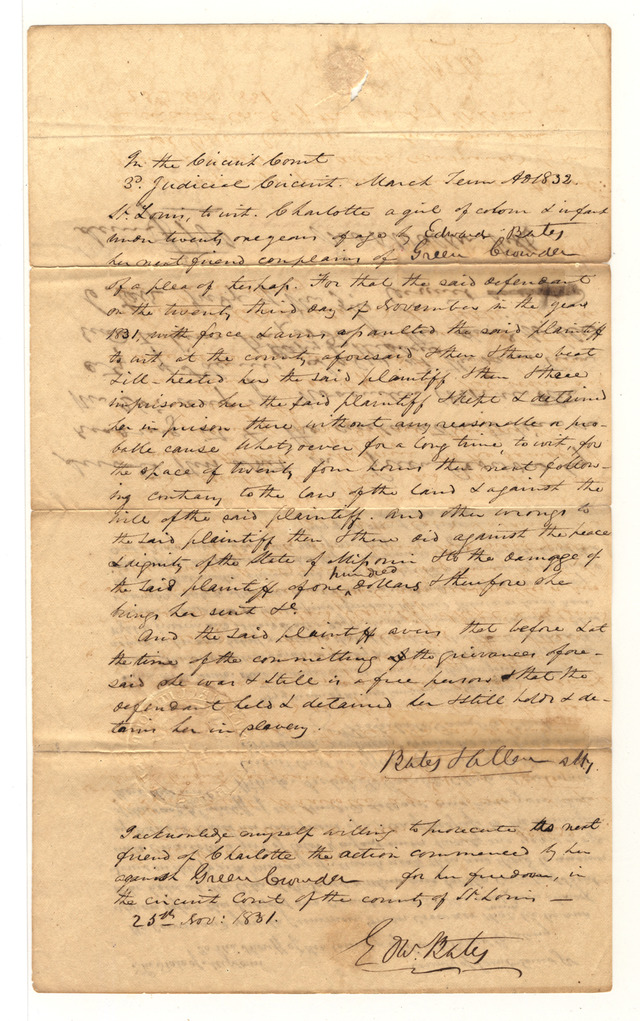 In the Circuit Court
3.d Judicial Circuit. March Term AD 1832.
St. Louis, to wit. Charlotte a girl of colour & infant
under twenty one years of age by Edward Bates
her next friend complains of Green Crowder
of a plea of trespass. For that the said defendant
on the twenty third day of November in the year
1831, with force & arms assaulted the said plaintiff
to wit at the county aforesaid & then & there beat
& ill-treated her the said plaintiff & then & there
imprisoned her the said plaintiff & kept & detained
her in prison there without any reasonable or pro-
bable cause whatsoever for a long time, to wit, for
the space of twenty four hours then next follow-
ing contrary to the law of the land & against the
will of the said plaintiff. And other wrongs to
the said plaintiff then & there did against the peace
& dignity of the State of Missouri & to the damage of
the said plaintiff of one hundred dollars & therefore she
brings her suit &c
And the said plaintiff avers that before & at
the time of the committing of the grievances afore-
said she was & still is a free person & that the
defendant held & detained her & still holds & de-
tains her in slavery.
Bates & Allen atty.
I acknowledge myself willing to prosecute as next
friend of Charlotte the action commenced by her
against Green Crowder for her freedom, in
the circuit Court of the county of St. Louis —
25th Nov: 1831.
Edw. Bates